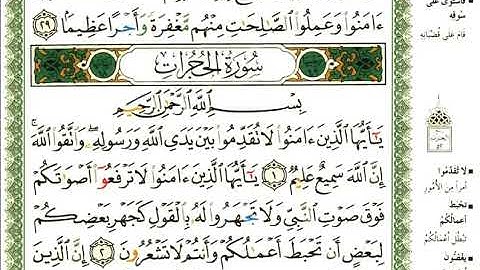 ءَامَنُوا۟ وَعَمِلُوا۟ ٱلصَّـٰلِحَـٰتِ مِنْهُم مَّغْفِرَةً وَأَجْرًا عَظِيمًۢا ٢٩
سُورَةُ الحُجُرَاتِ
بِسْمِ ٱللَّهِ ٱلرَّحْمَـٰنِ ٱلرَّحِيمِ
يَـٰٓأَيُّهَا ٱلَّذِينَ ءَامَنُوا۟ لَا تُقَدِّمُوا۟ بَيْنَ يَدَىِ ٱللَّهِ وَرَسُولِهِۦ ۖ وَٱتَّقُوا۟ ٱللَّهَ ۚ
إِنَّ ٱللَّهَ سَمِيعٌ عَلِيمٌ ١ يَـٰٓأَيُّهَا ٱلَّذِينَ ءَامَنُوا۟ لَا تَرْفَعُوٓا۟ أَصْوَٰتَكُمْ
فَوْقَ صَوْتِ ٱلنَّبِىِّ وَلَا تَجْهَرُوا۟ لَهُۥ بِٱلْقَوْلِ كَجَهْرِ بَعْضِكُمْ
لِبَعْضٍ أَن تَحْبَطَ أَعْمَـٰلُكُمْ وَأَنتُمْ لَا تَشْعُرُونَ ٢ إِنَّ ٱلَّذِينَ
فَاسْتَوَى عَلَى
سُوقِهِ
قَامَ عَلَى قُضْبَانِهِ
لَا تُقَدِّمُوا
أَمْرًا مِنَ الأُمُورِ
تَحْبَطَ
أَعْمَالُكُمْ
تَبْطُلَ أَعْمَالُكُمْ
يَغُضُّونَ